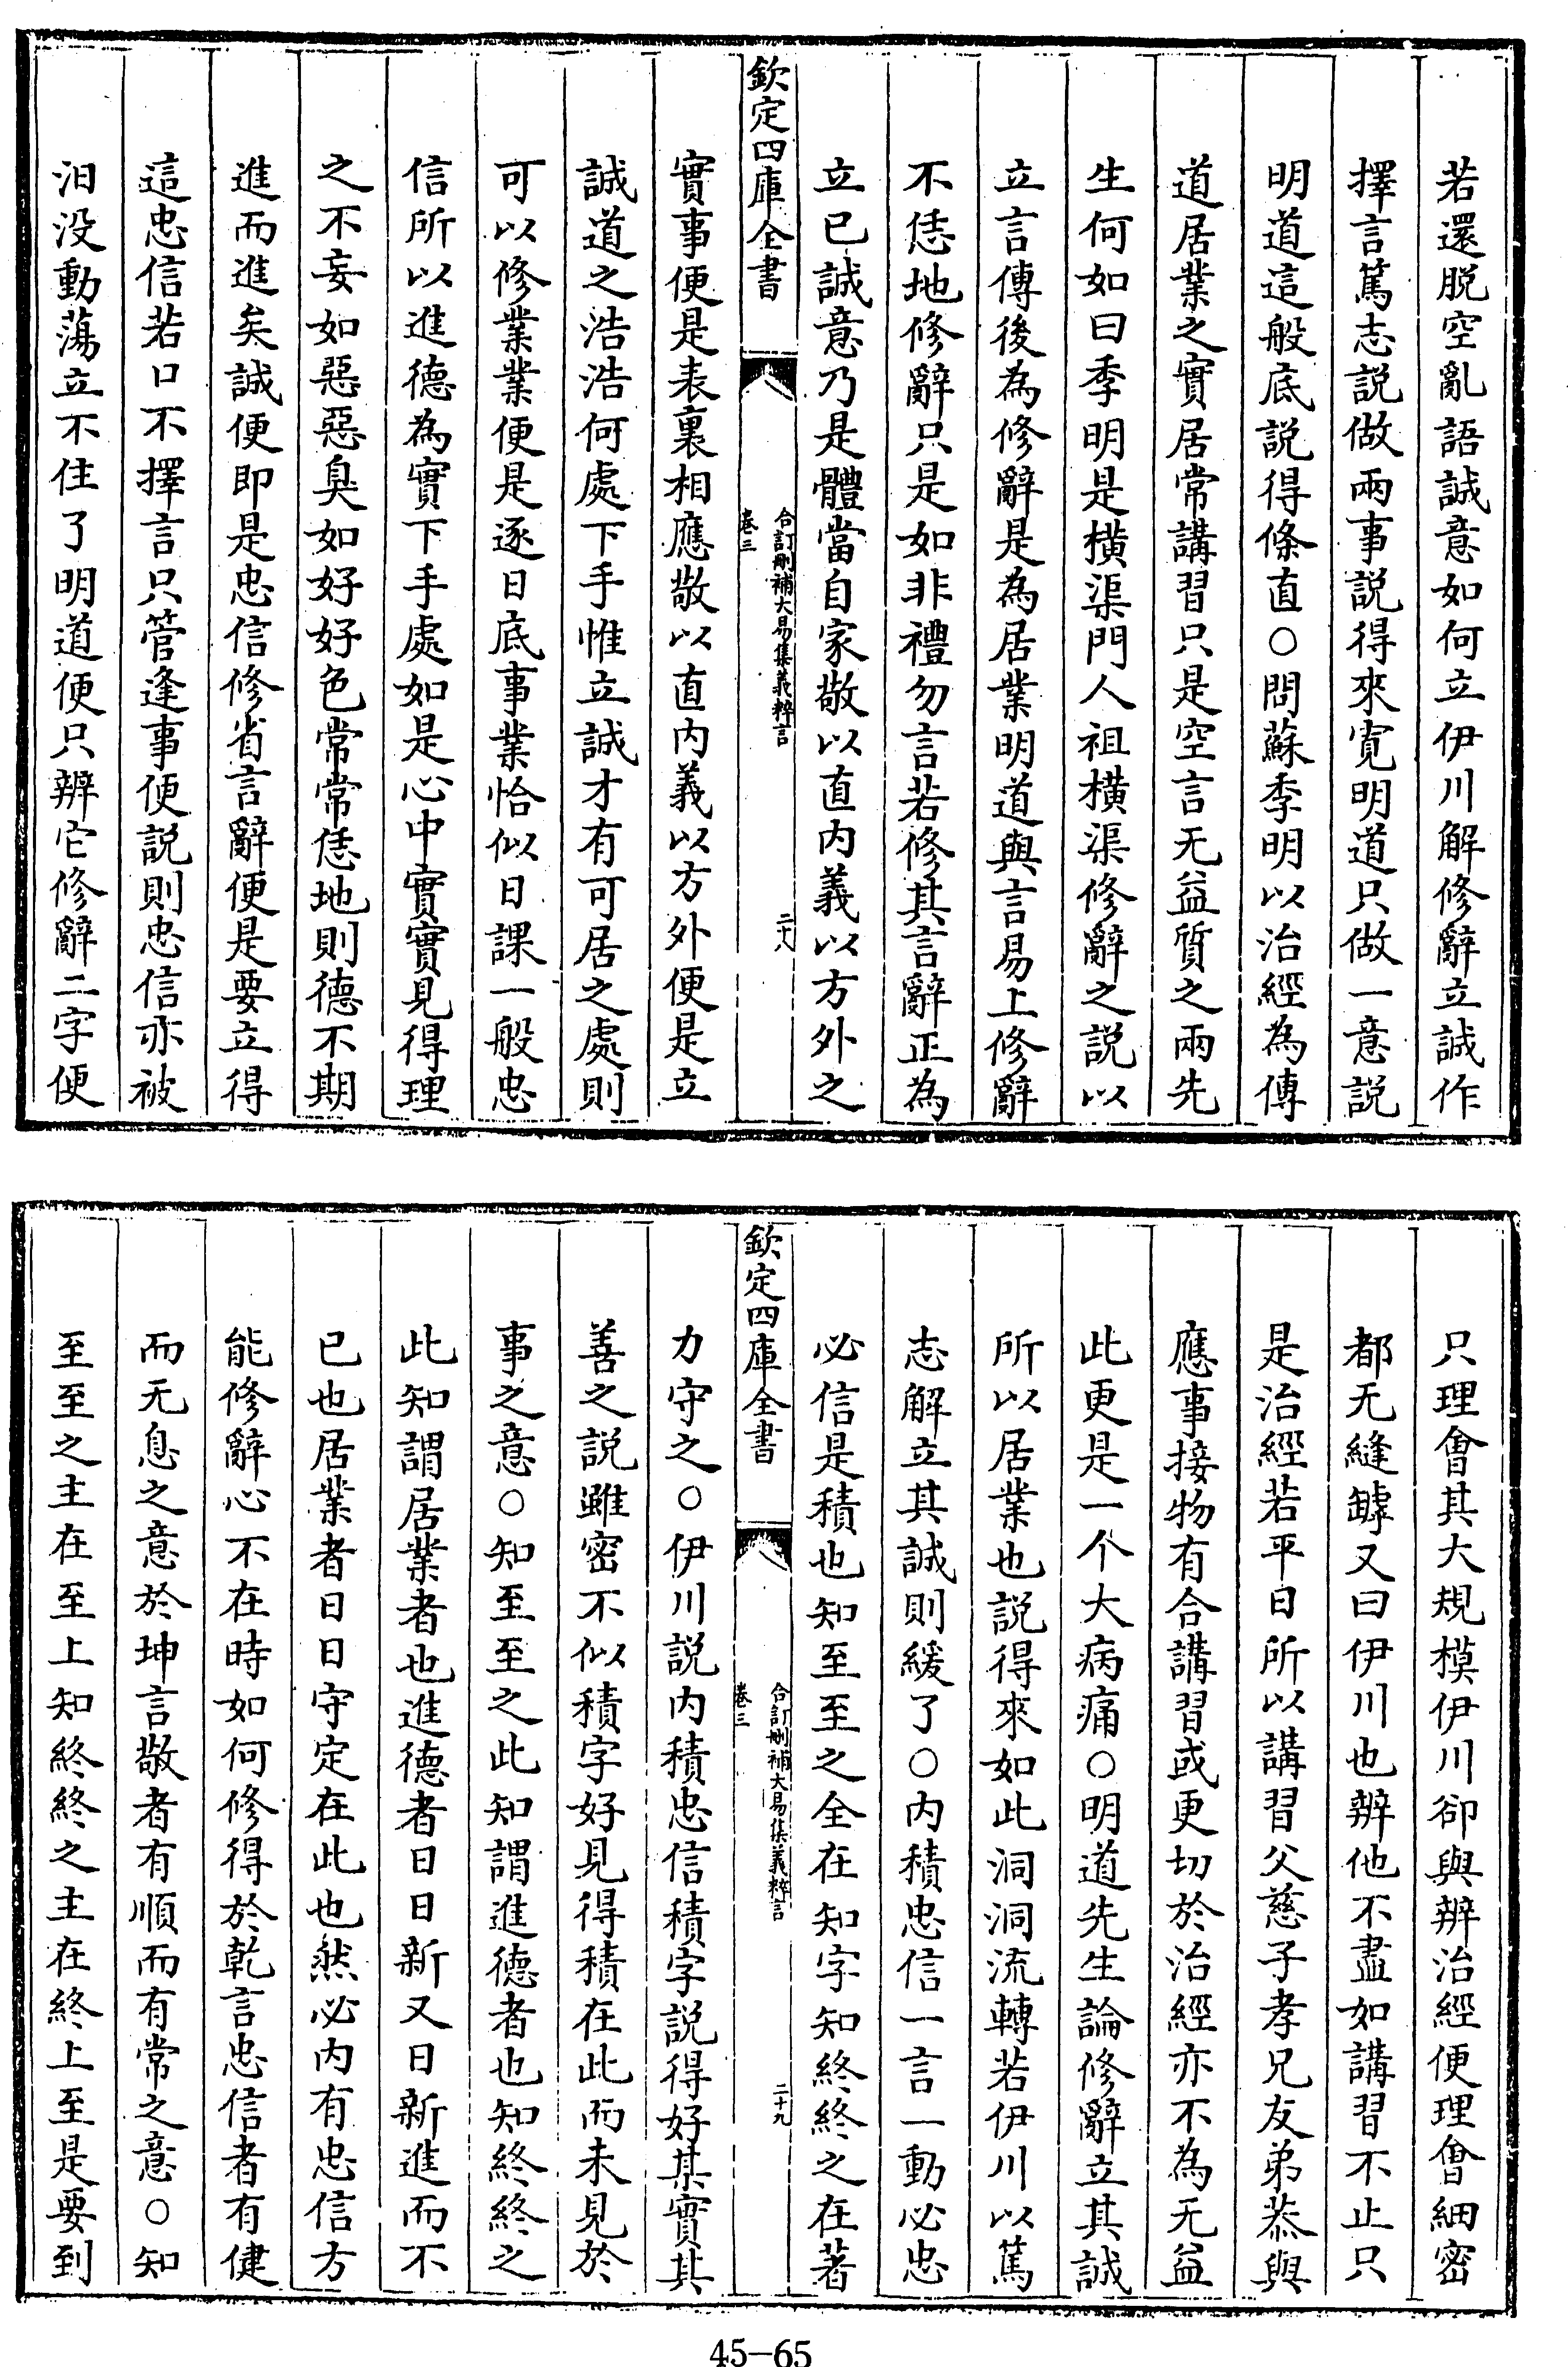 若還脱空亂語誠意如何立伊川解修辭立誠作
擇言篤志説做兩事説得來寛明道只做一意説
明道這般底説得條直○問蘇季明以治經為傳
道居業之實居常講習只是空言无益質之兩先
生何如曰季明是橫渠門人祖橫渠修辭之説以
立言傳後為修辭是為居業明道與言易上修辭
不恁地修辭只是如非禮勿言若修其言辭正為
立已誠意乃是體當自家敬以直内義以方外之
欽定四庫全書
合訂刪補大易集義粹言
卷三
二十八
實事便是表裏相應敬以直内義以方外便是立
誠道之浩浩何處下手惟立誠才有可居之處則
可以修業業便是逐日底事業恰似日課一般忠
信所以進德為實下手處如是心中實實見得理
之不妄如惡惡臭如好好色常常恁地則德不期
進而進矣誠便即是忠信修省言辭便是要立得
這忠信若口不擇言只管逢事便説則忠信亦被
汨没動蕩立不住了明道便只辨它修辭二字便
只理會其大規模伊川卻與辨治經便理會細密
都无縫罅又曰伊川也辨他不盡如講習不止只
是治經若平日所以講習父慈子孝兄友弟恭與
應事接物有合講習或更切於治經亦不為无益
此更是一个大病痛○明道先生論修辭立其誠
所以居業也説得來如此洞洞流轉若伊川以篤
志解立其誠則緩了○内積忠信一言一動必忠
必信是積也知至至之全在知字知終終之在著
欽定四庫全書
合訂刪補大易集義粹言
卷三
二十九
力守之○伊川説内積忠信積字説得好某實其
善之説雖密不似積字好見得積在此而未見於
事之意○知至至之此知謂進德者也知終終之
此知謂居業者也進德者日日新又日新進而不
已也居業者日日守定在此也然必内有忠信方
能修辭心不在時如何修得於乾言忠信者有健
而无息之意於坤言敬者有順而有常之意○知
至至之主在至上知終終之主在終上至是要到
45-65